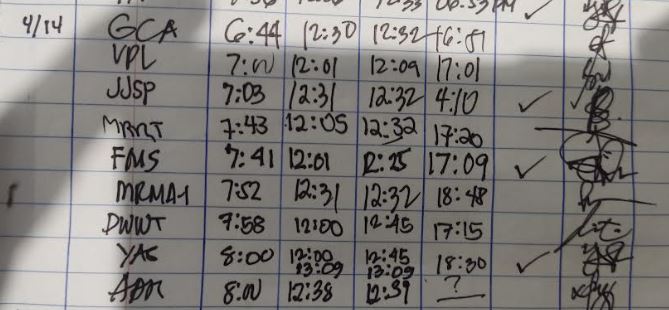 06:53PM
4/14 GCA 6:44 12:30 12:32
VPL 7:00 12:01 12:09 17:01
JJSP 7:03 12:31 12:32 4:10 ✓
7:43 12:05 12:32 17:20
FMS 7:41 12:01 12:25 17:09 ✓
MRMA-1 7:52 12:31 12:32 18:48
DWWT 7:58 12:00 12:45 17:15
YAS 8:00 12:00 12:45 18:30 ✓
13:09 13:09
8:00 12:38 12:39 ?